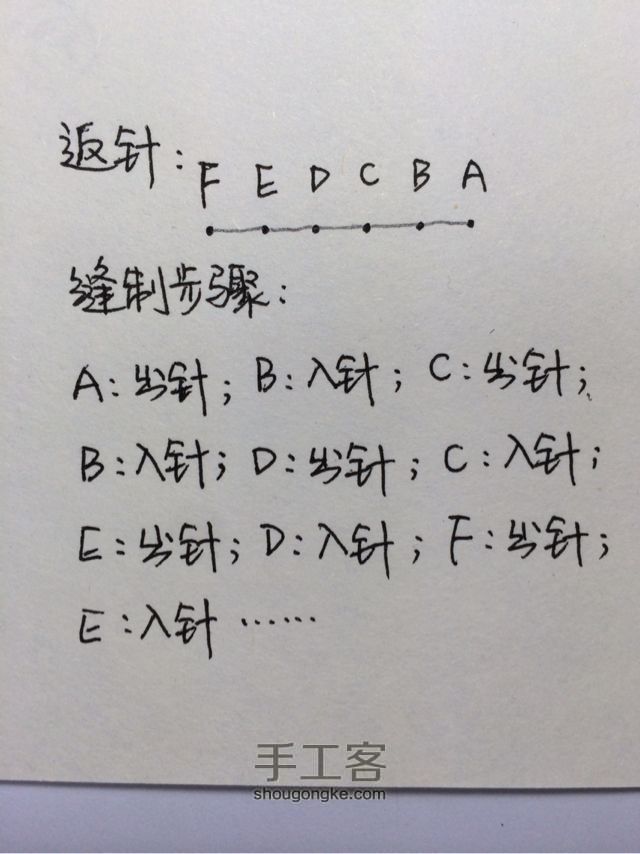 返针：F E D C B A
缝制步骤：
A：出针；B：入针；C：出针；
B：入针；D：出针；C：入针；
E：出针；D：入针；F：出针；
E：入针……
手工客
shougongke.com